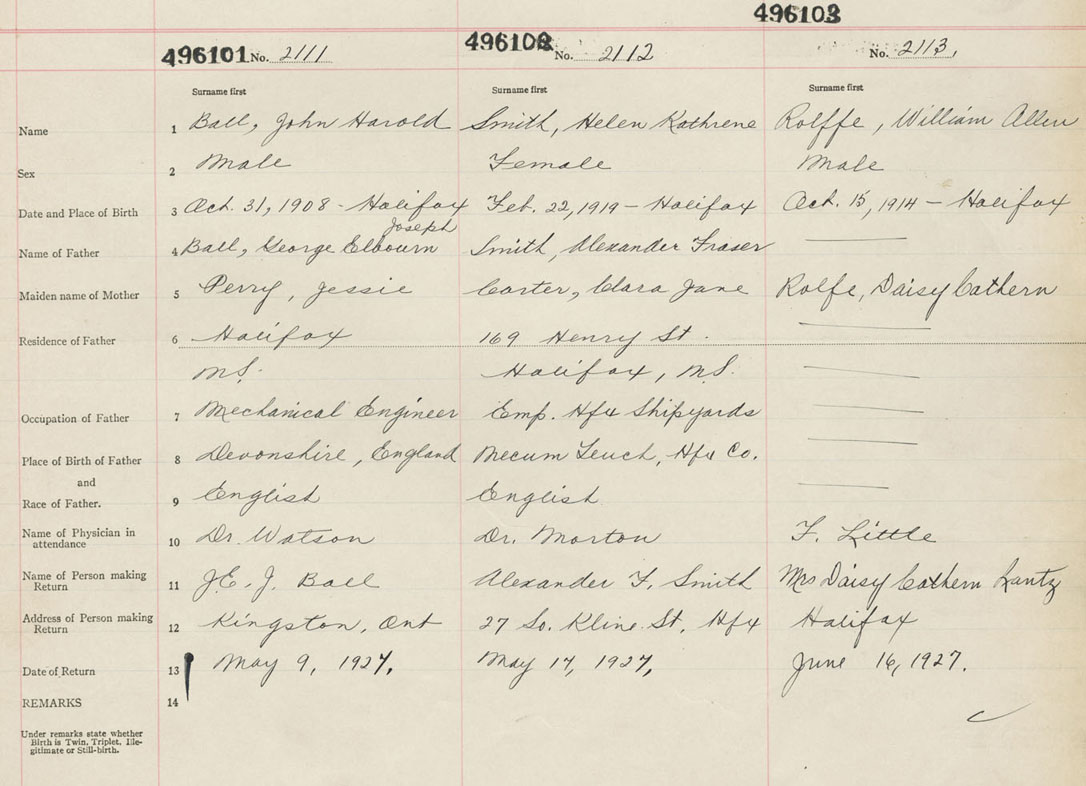 496103
496101 No. 2111 496102 No. 2112 No. 2113,
Surname first Surname first Surname first
Name 1 Ball, John Harold Smith, Helen Kathrene Rolffe, William Allen
Sex 2 Male Female Male
Date and Place of Birth 3 Oct. 31, 1908 - Halifax Feb. 22, 1919 - Halifax Oct. 15, 1914 - Halifax
Joseph
Name of Father 4 Ball, George Elbourn Smith, Alexander Fraser
Maiden name of Mother 5 Perry, Jessie Carter, Clara Jane Rolfe, Daisy Cathern
Residence of Father 6 Halifax 169 Henry St.
N.S. Halifax, N.S.
Occupation of Father 7 Mechanical Engineer Emp. Hfx Shipyards
Place of Birth of Father 8 Devonshire, England Mecum Hfx Co.
and
Race of Father. 9 English English
Name of Physician in 10 Dr. Watson Dr. Morton F. Little
attendance
Name of Person making 11 J.E.J. Ball Alexander F. Smith Mrs Daisy Cathern Lantz
Return
Address of Person making 12 Kingston, Ont 27 So. Kline St, Hfx Halifax
Return
Date of Return 13 May 9, 1927, May 17, 1927, June 16, 1927.
REMARKS 14
Under remarks state whether
Birth is Twin, Triplet, Ille-
gitimate or Still-birth.